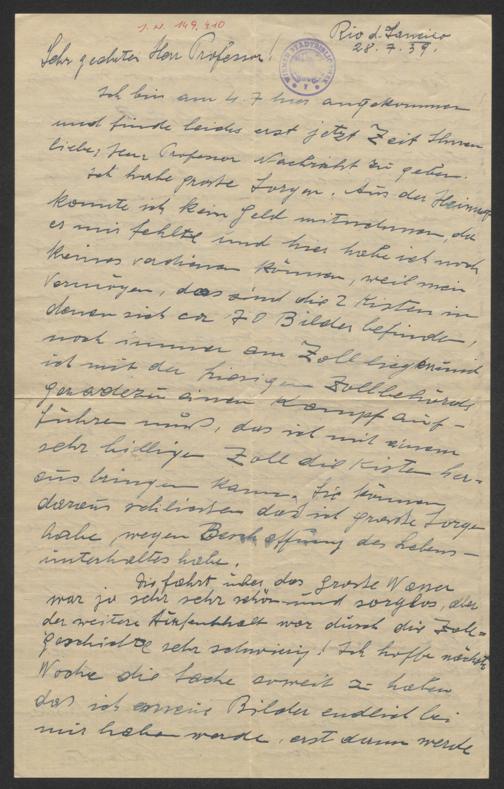 J. N. 149.410
Rio d. Janeiro
28. 7. 39.
Sehr geehrter Herr Professor!
Ich bin am 4. 7 hier angekommen
und finde leider erst jetzt Zeit Ihnen
lieber Herr Professor Nachricht zu geben.
Ich habe grosse Sorgen. Aus der Heimat
konnte ich kein Geld mitnehmen, da
es mir fehlte und hier habe ich noch
keines verdienen können, weil mein
Vermögen, das sind die 2 Kisten in
denen sich ca 70 Bilder befinden,
noch immer am Zoll liegen und
ich mit der hiesigen Zollbehörde
geradezu einen Kampf auf-
führen muß, das ich mit einem
sehr billigen Zoll die Kisten her-
aus bringen kann. Sie können
daraus schliessen das ich grosse Sorge
habe, wegen Beschaffung des Lebens-
unterhaltes habe.
Die Fahrt über das grosse Wasser
war ja sehr sehr schön und sorglos, aber
der weitere Aufenthalt war durch die Zoll-
geschichte sehr schwierig! Ich hoffe nächste
Woche die Sache soweit zu haben
das ich meine Bilder endlich bei
mir haben werde, erst dann werde